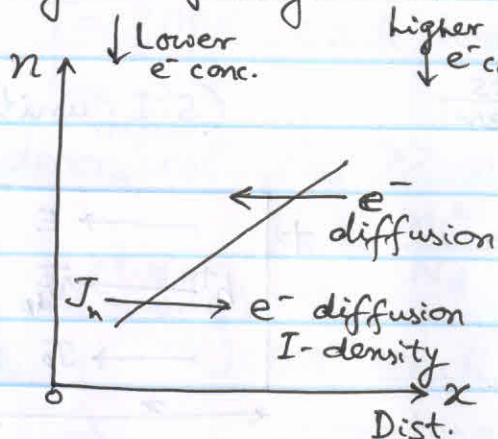 Lower
e⁻ conc.
higher
n
e⁻ diffusion
Jₙ e⁻ diffusion
I-density
o
x
Dist.